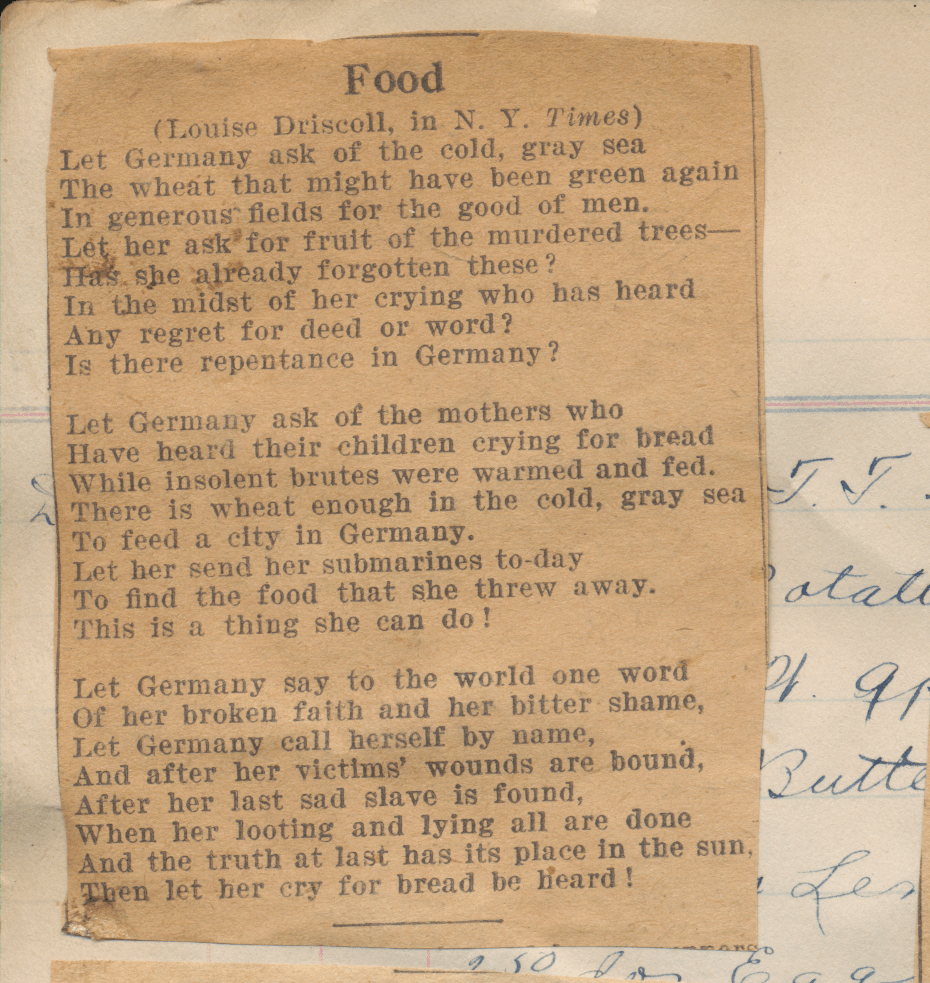 Food
(Louise Driscoll, in N. Y. Times)
Let Germany ask of the cold, gray sea
The wheat that might have been green again
In generous fields for the good of men.
Let her ask for fruit of the murdered trees—
Has she already forgotten these?
In the midst of her crying who has heard
Any regret for deed or word?
Is there repentance in Germany?
Let Germany ask of the mothers who
Have heard their children crying for bread
While insolent brutes were warmed and fed.
There is wheat enough in the cold, gray sea
To feed a city in Germany.
Let her send her submarines to-day
To find the food that she threw away.
This is a thing she can do!
Let Germany say to the world one word
Of her broken faith and her bitter shame,
Let Germany call herself by name,
And after her victims' wounds are bound,
After her last sad slave is found,
When her looting and lying all are done
And the truth at last has its place in the sun,
Then let her cry for bread be heard!
T. T.